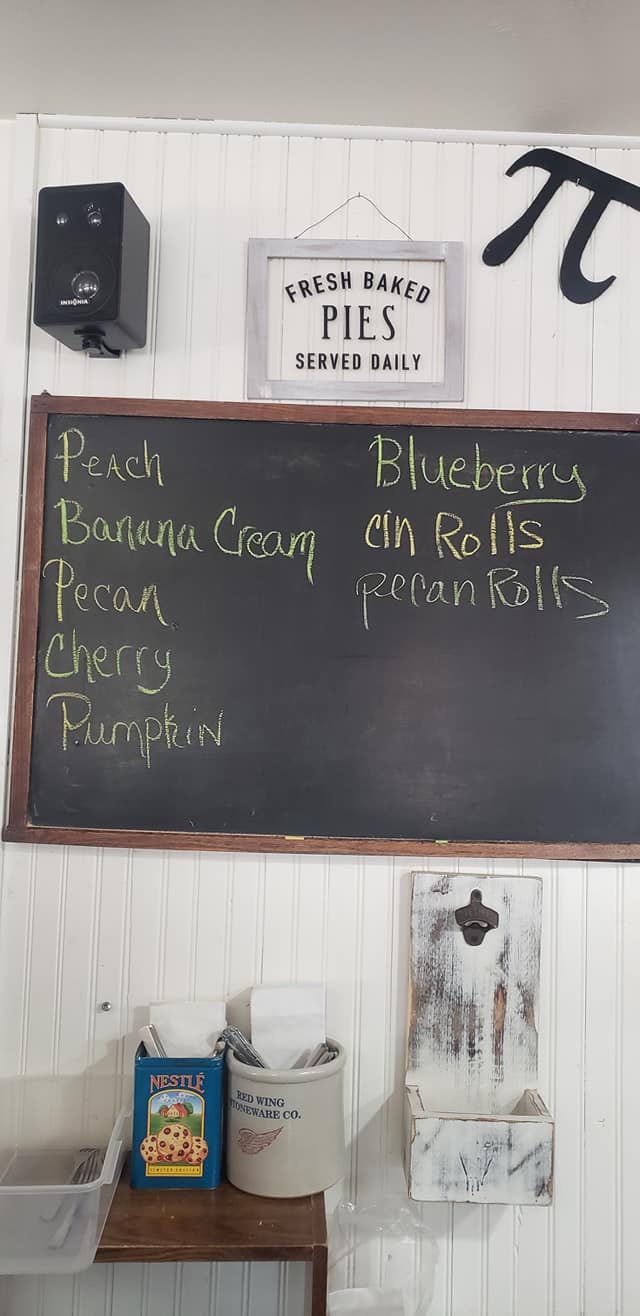 INSIGNIA
π
FRESH BAKED
PIES
SERVED DAILY
Peach
Banana Cream
Pecan
Cherry
Pumpkin
Blueberry
cin Rolls
pecan Rolls
NESTLÉ
LIMITED EDITION
RED WING
STONEWARE CO.